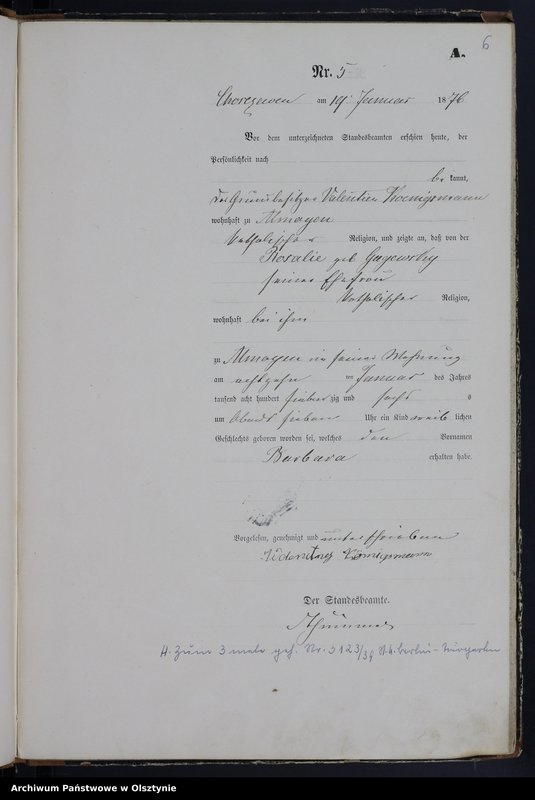 6
A.
Nr. 5
am 19. Januar 1876
Vor dem unterzeichneten Standesbeamten erschien heute, der
Persönlichkeit nach
be kannt,
der Grundbesitzer Valentin Koenigsmann
wohnhaft zu Almoyen
katholischer Religion, und zeigte an, daß von der
Rosalie geb
seiner Ehefrau
katholischer Religion,
wohnhaft bei ihm
zu Almoyen in seiner Wohnung
am achtzehn ten Januar des Jahres
tausend acht hundert sieben zig und sechs
um Abends sieben Uhr ein Kind weib lichen
Geschlechts geboren worden sei, welches den Vornamen
Barbara erhalten habe.
Vorgelesen, genehmigt und unterschrieben
Königsmann
Der Standesbeamte.
4. Zum 3 male geh. Nr. St. A. Berlin-Tiergarten
Archiwum Państwowe w Olsztynie